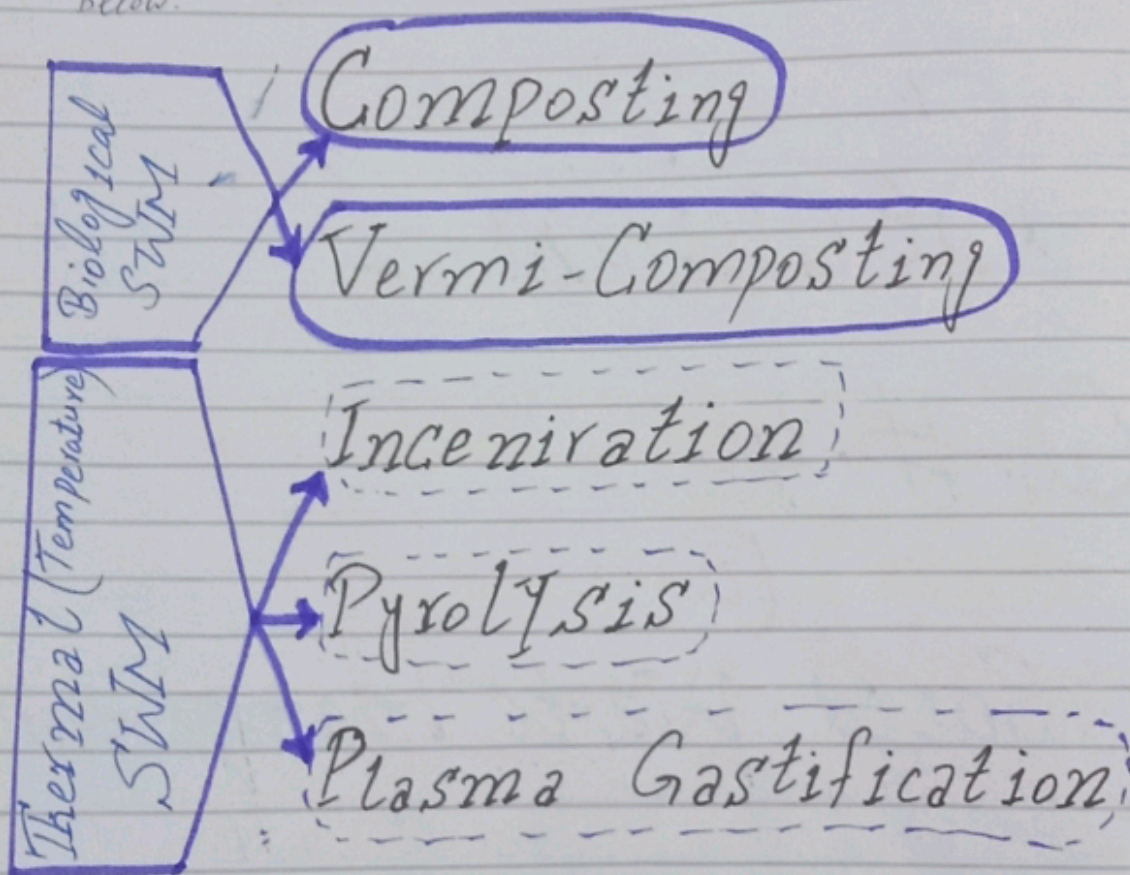 below.
Biological
SWM
Composting
Vermi-Composting
Thermal (Temperature)
SWM
Inceniration
Pyrolysis
Plasma Gastification